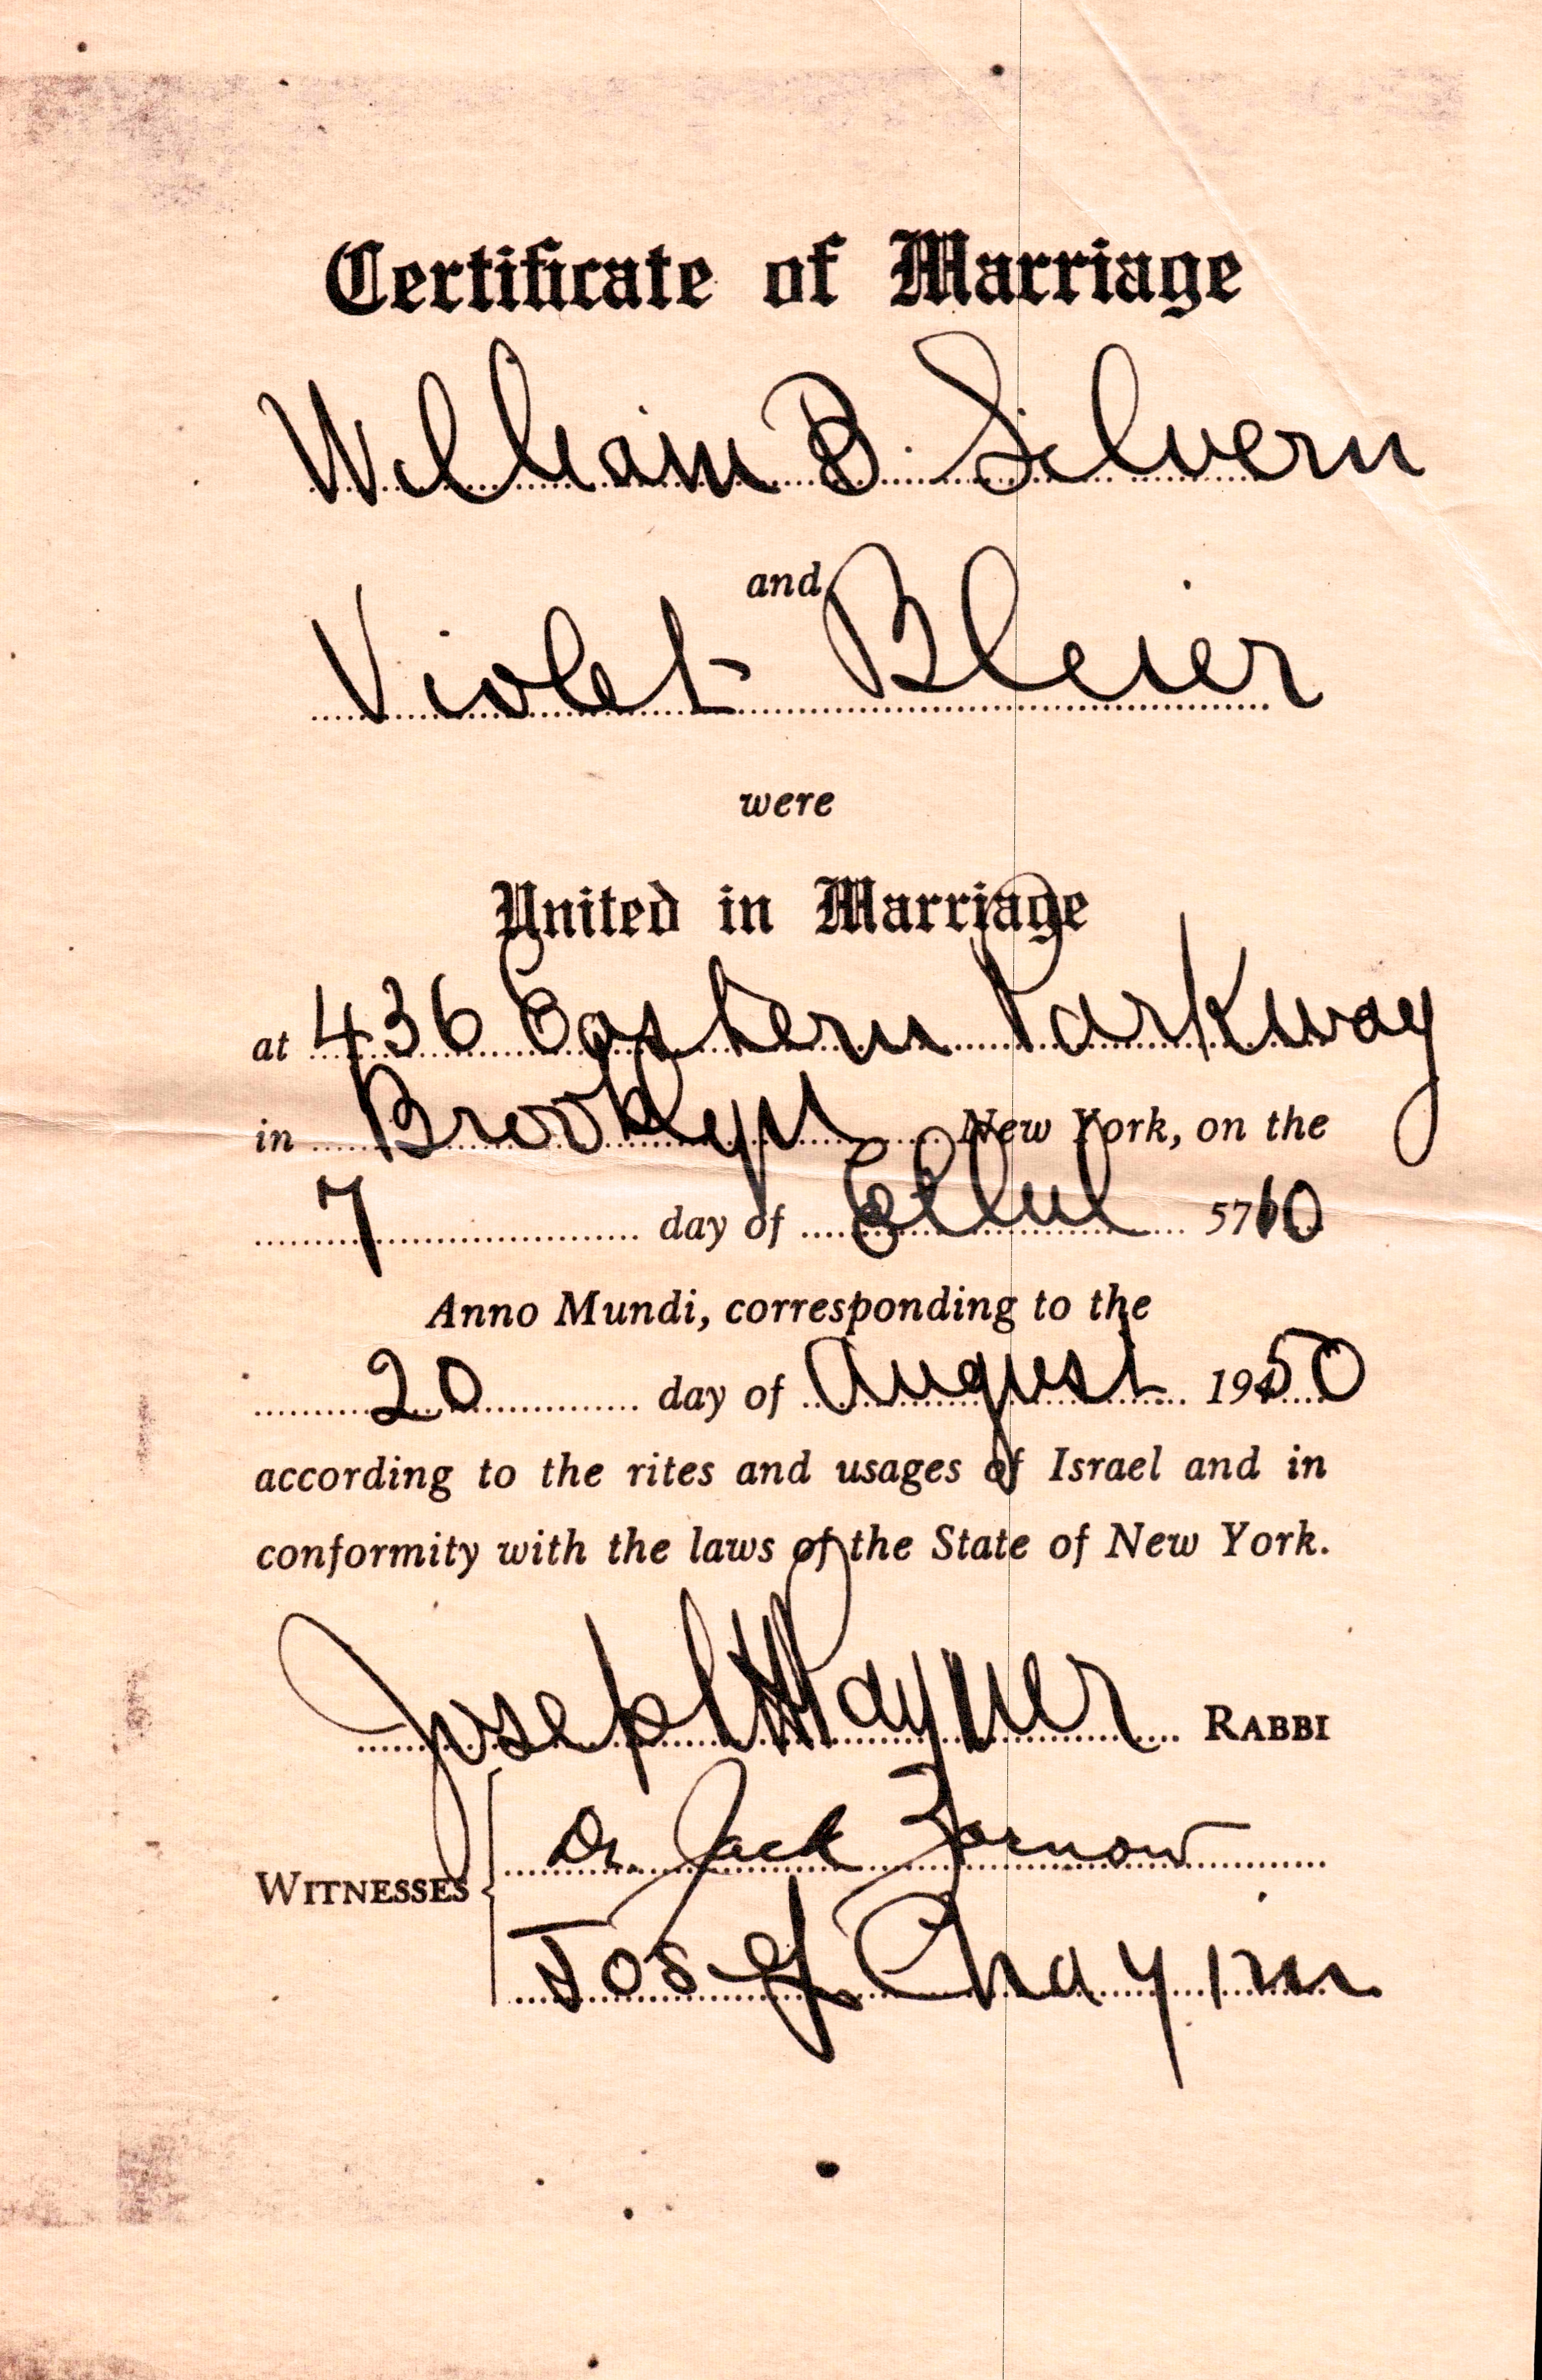 Certificate of Marriage
William B. Silvern
and
Violet Bleier
were
United in Marriage
at 436 Eastern Parkway
in Brooklyn New York, on the
7 day of Ellul 5710
Anno Mundi, corresponding to the
20 day of August 1950
according to the rites and usages of Israel and in
conformity with the laws of the State of New York.
Joseph H Rayner RABBI
WITNESSES
Dr. Jack Zarnow
Josef Chayim